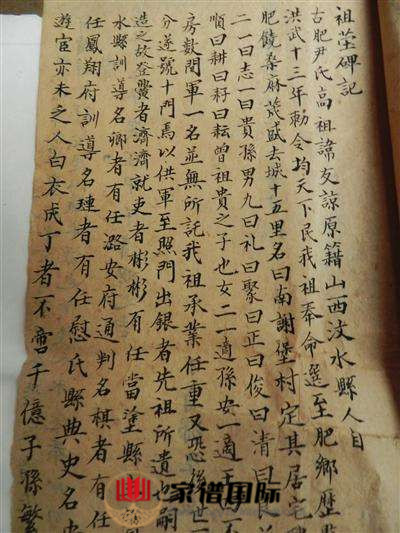 祖茔碑記
古肥尹氏高祖諱友諒原籍山西汶水縣人自
洪武十三年勅令均天下民我祖奉命選至肥鄉歷
肥饒桑麻茂盛去城十五里名曰南謝堡村定其居宅
二一曰志一曰貴孫男九曰礼曰聚曰正曰俊曰清曰良
順曰耕曰耔曰耘曾祖貴之子也女二一適孫安一適王
房数門軍一名並無所託我祖承業任重又恐後世
分遂號十門馬以供軍至照門出銀者先祖所遺也嗣
造之故登黌者濟濟就吏者彬彬有任當塗縣
水縣訓導名卿者有任潞安府通判名棋者有任
任鳳翔府訓導名璉者有任慰氏縣典史名
遊宦亦未之人白衣成丁者不啻千億子孫繁
家偕国际